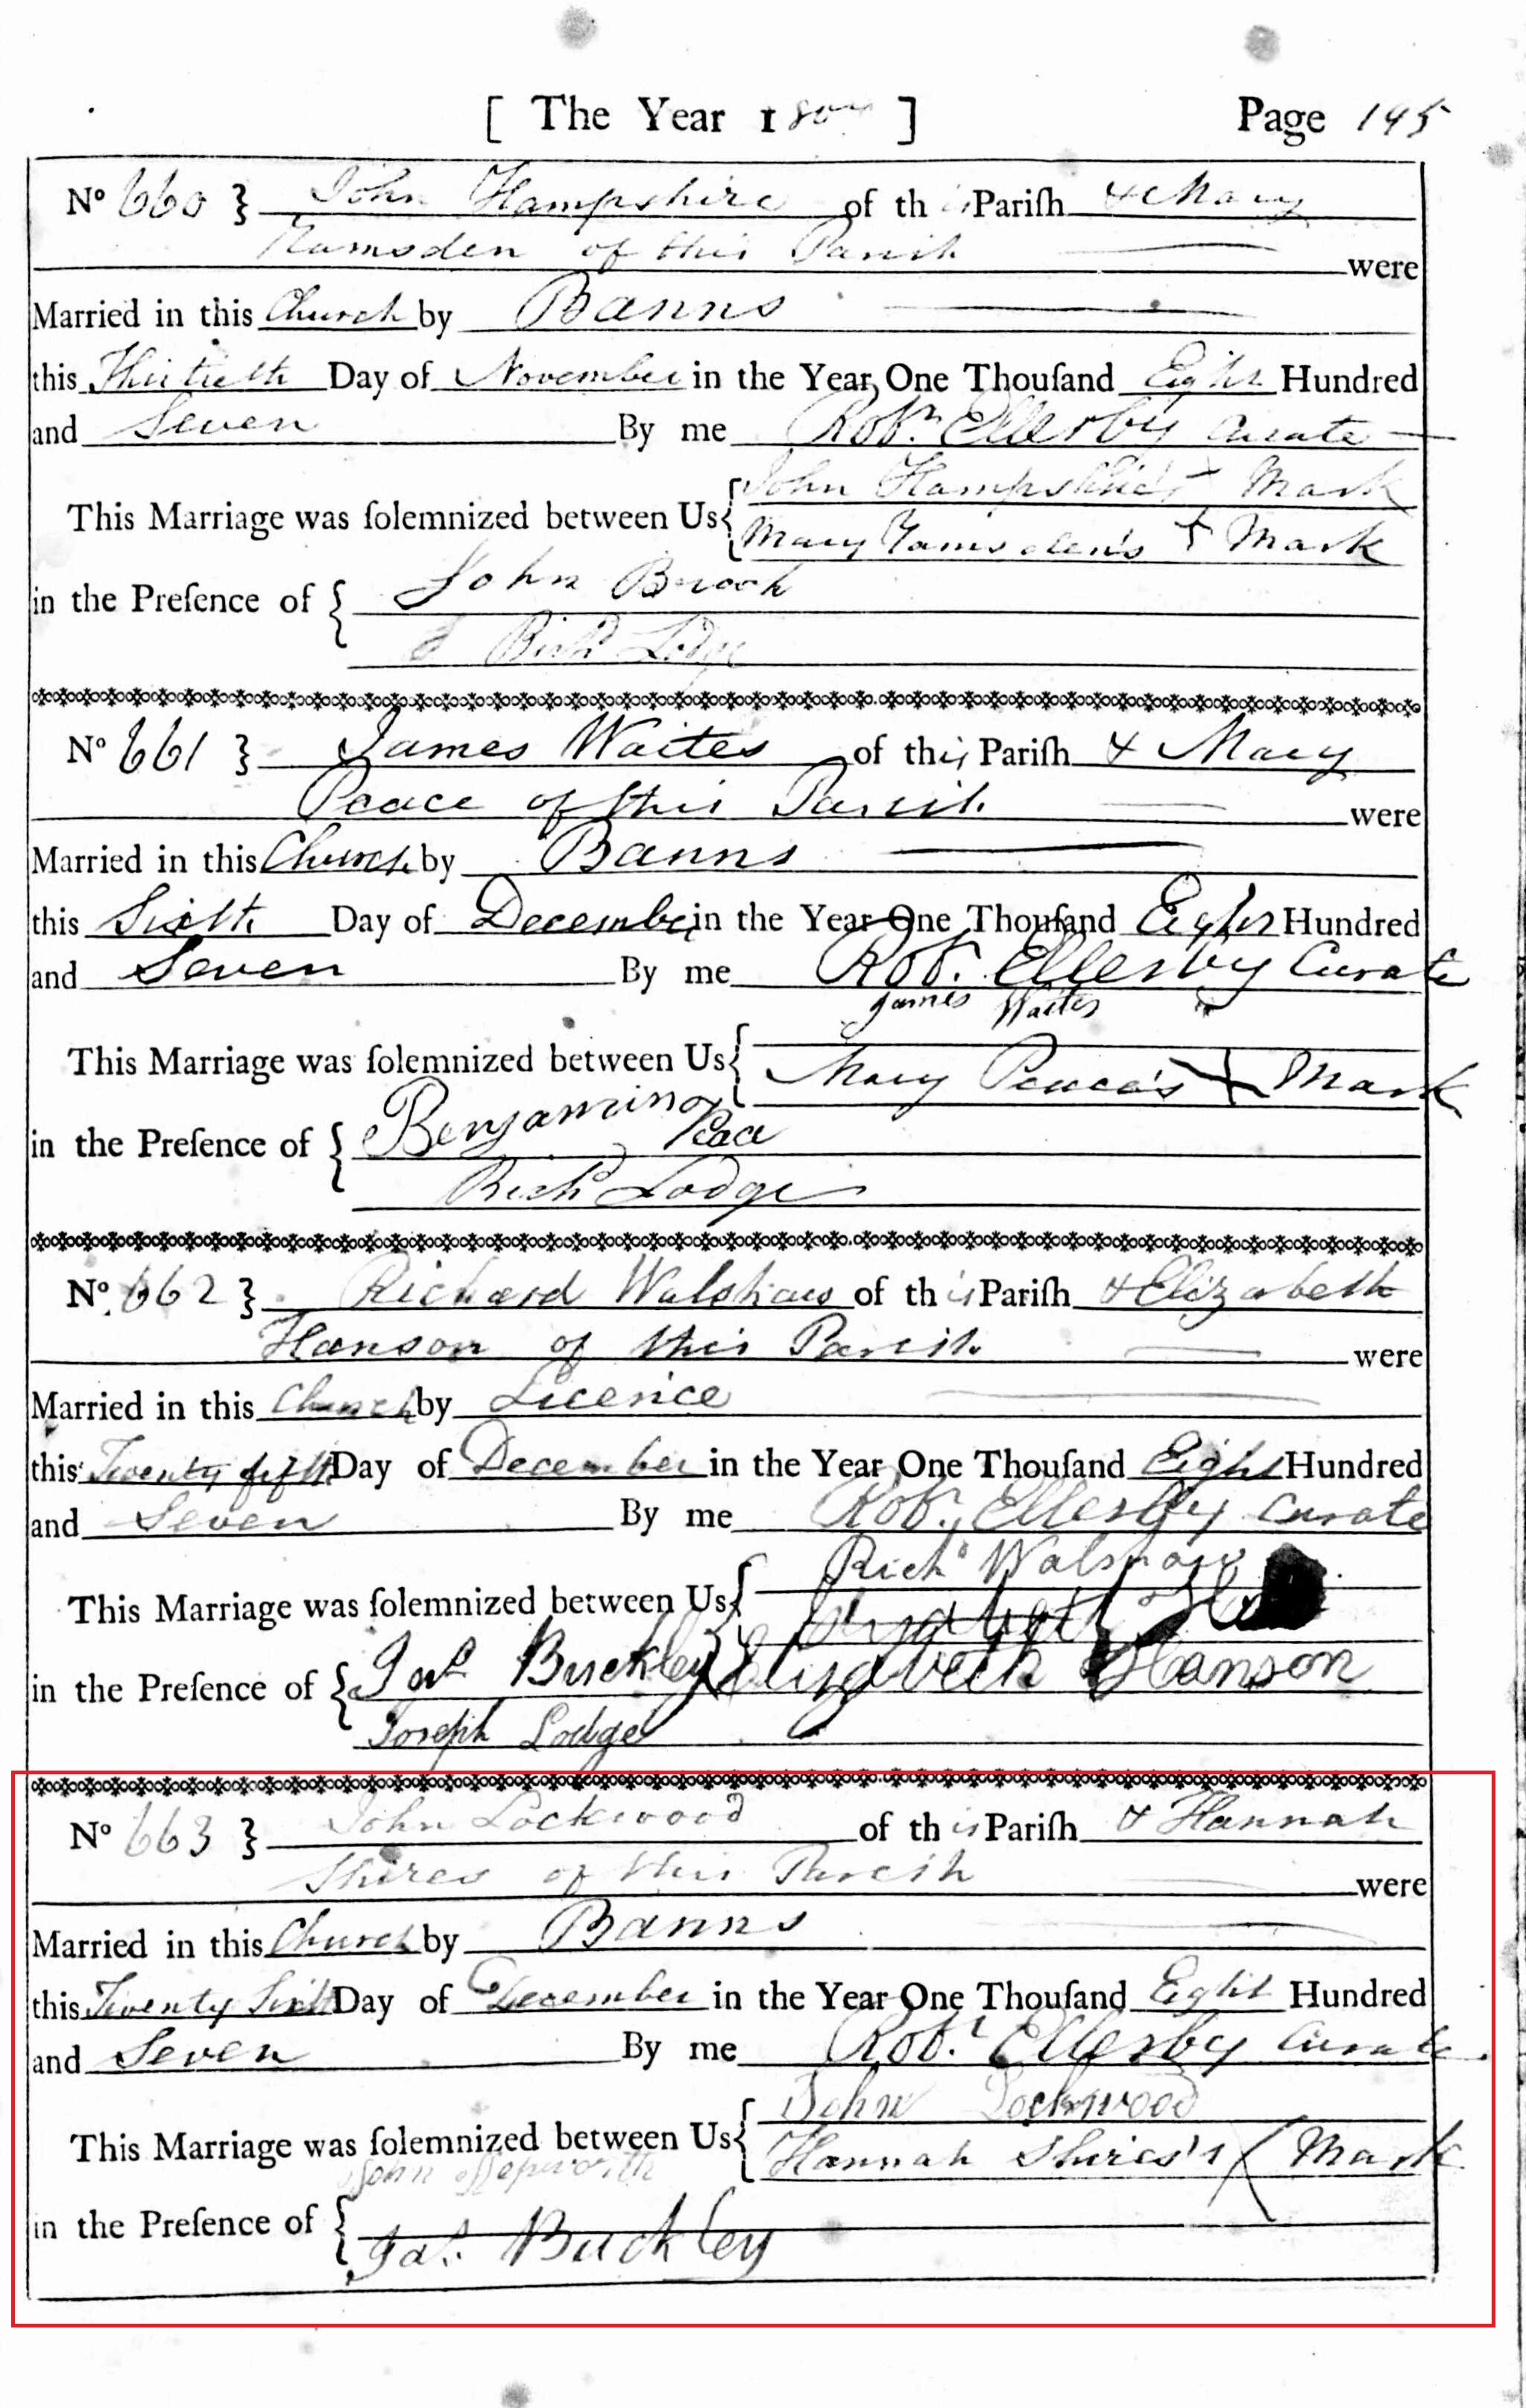 [ The Year 1807 ] Page 195
No 660 } John Hampshire of this Pariſh & Mary
Ramsden of this Parish were
Married in this Church by Banns
this Thirtieth Day of November in the Year One Thouſand Eight Hundred
and Seven By me Robt. Ellerby Curate
This Marriage was ſolemnized between Us { John Hampshire's + Mark
Mary Ramsden's + Mark
in the Preſence of { John Brook
Richd Lodge
No 661 } James Waites of this Pariſh & Mary
Peace of this Parish were
Married in this Church by Banns
this Sixth Day of December in the Year One Thouſand Eight Hundred
and Seven By me Robt. Ellerby Curate
James Waites
This Marriage was ſolemnized between Us { Mary Peace's + Mark
in the Preſence of { Benjamin Peace
Richd Lodge
No. 662 } Richard Walshaw of this Pariſh & Elizabeth
Hanson of this Parish were
Married in this Church by Licence
this Twenty fifth Day of December in the Year One Thouſand Eight Hundred
and Seven By me Robt. Ellerby Curate
Richd Walshaw
This Marriage was ſolemnized between Us {
in the Preſence of { Jas Buckley } Elizabeth Hanson
Joseph Lodge
No 663 } John Lockwood of this Pariſh & Hannah
Shires of this Parish were
Married in this Church by Banns
this Twenty Sixth Day of December in the Year One Thouſand Eight Hundred
and Seven By me Robt. Ellerby Curate.
John Lockwood
This Marriage was ſolemnized between Us { Hannah Shires's X Mark
John Hepworth
in the Preſence of { Jas. Buckley